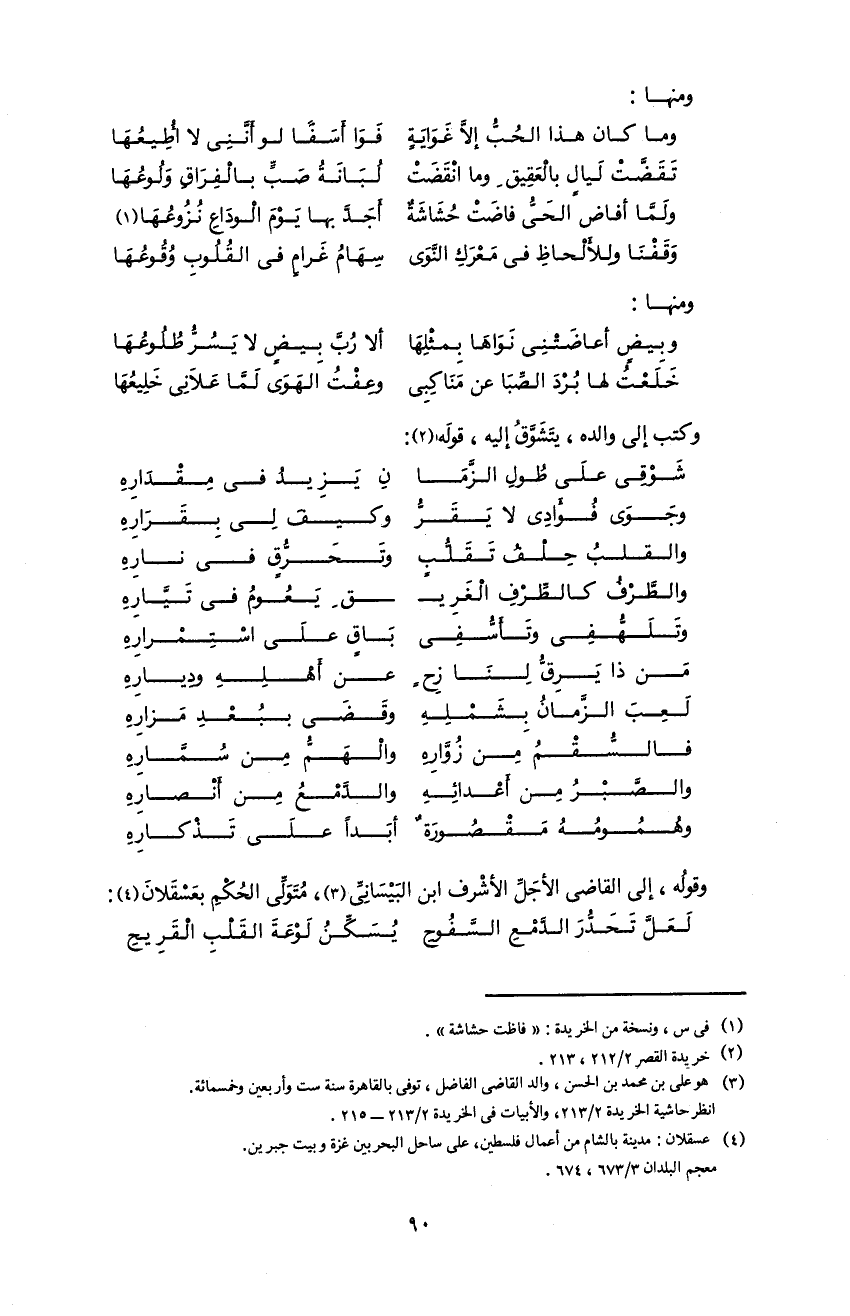 ومنهـا :
ومـا كـان هـذا الـحُبُّ إلاَّ غَوَايَةٍ فَوَا أَسَفًـا لـو أنَّـنِـى لا أُطِـيـعُـهَـا
تَـقَـضَّـتْ لَـيـالٍ بِالْعَقِيقِ وما انْقَضَتْ لُـبَـانَـةُ صَـبٍّ بـالْـفِـرَاقِ وَلُوعُـهَـا
ولَـمَّـا أفـاض الـحَـىُّ فاضَتْ حُشَاشَةٌ أَجَـدَّ بـهـا يَـوْمَ الْـودَاعِ نُـزُوعُـهَـا(١)
وَقَفْنَا وللأَلْـحاظِ فـى مَعْرَكِ النَّوَى سِهَامُ غَرامٍ فـى القُلُوبِ وُقُوعُهَا
ومنهـا :
وبـيـضٍ أعـاضَـتْـنِـى نَـوَاهَـا بِـمـثْـلِهَا ألا رُبَّ بِـيـضٍ لا يَـسُـرُّ طُـلُوعُـهَـا
خَـلَـعْـتُ لها بُرْدَ الصِّبَا عن مَنَاكِبِى وعِفْتُ الـهَوَى لَـمَّا عَلاَنِى خَلِيعُهَا
وكتب إلى والده ، يتَشَوَّقُ إليه ، قولَه(٢):
شَـوْقِـى عـلَـى طُـولِ الـزَّمَـا نِ يَـزِيـدُ فـى مِـقْـدَارِهِ
وجَـوَى فُـؤَادِى لا يَـقَـرُّ وكـيـفَ لِـى بِـقَـرَارِهِ
والـقـلـبُ حِـلْـفُ تَـقَـلُّـبٍ وتَـحَـرُّقٍ فـى نـارِهِ
والطَّـرْفُ كـالـطِّـرْفِ الْغَرِيـ ـقِ يَـعُـومُ فـى تَـيَّـارِهِ
وتَـلَـهُّـفِـى وتَـأَسُّـفِـى بَـاقٍ عـلَـى اسْـتِـمْـرارِهِ
مَـن ذا يَـرِقُّ لِـنَـازِحٍ عـن أَهْـلِـهِ ودِيـارِهِ
لَـعِـبَ الـزَّمـانُ بِـشَـمْـلِـهِ وقَـضَـى بـبُـعْـدِ مَـزارِهِ
فـالـسُّـقْـمُ مِـن زُوَّارِهِ والْـهَـمُّ مِـن سُـمَّـارِهِ
والـصَّـبْـرُ مِـن أَعْـدائِـهِ والـدَّمْـعُ مِـن أَنْـصـارِهِ
وهُـمُـومُـهُ مَـقْـصُـورَةٌ أبَـداً عـلَـى تَـذْكـارِهِ
وقولُه ، إلى القاضى الأجَلِّ الأشْرف ابن البَيْسَانِىِّ (٣)، مُتَوَلِّى الحُكْمِ بعَسْقَلانَ(٤):
لَـعَـلَّ تَـحَـدُّرَ الـدَّمْـعِ الـسَّـفُوحِ يُـسَـكِّـنُ لَوْعَةَ الـقَلْبِ الْقَرِيحِ
(١) فى س ، ونسخة من الخريدة : « فاظت حشاشة » .
(٢) خريدة القصر ٢١٢/٢ ، ٢١٣ .
(٣) هو على بن محمد بن الحسن ، والد القاضى الفاضل ، توفى بالقاهرة سنة ست وأربعين وخمسمائة.
انظر حاشية الخريدة ٢١٣/٢، والأبيات فى الخريدة ٢١٣/٢ ــ ٢١٥ .
(٤) عسقلان : مدينة بالشام من أعمال فلسطين، على ساحل البحر بين غزة وبيت جبرين.
معجم البلدان ٦٧٣/٣ ، ٦٧٤ .
٩٠